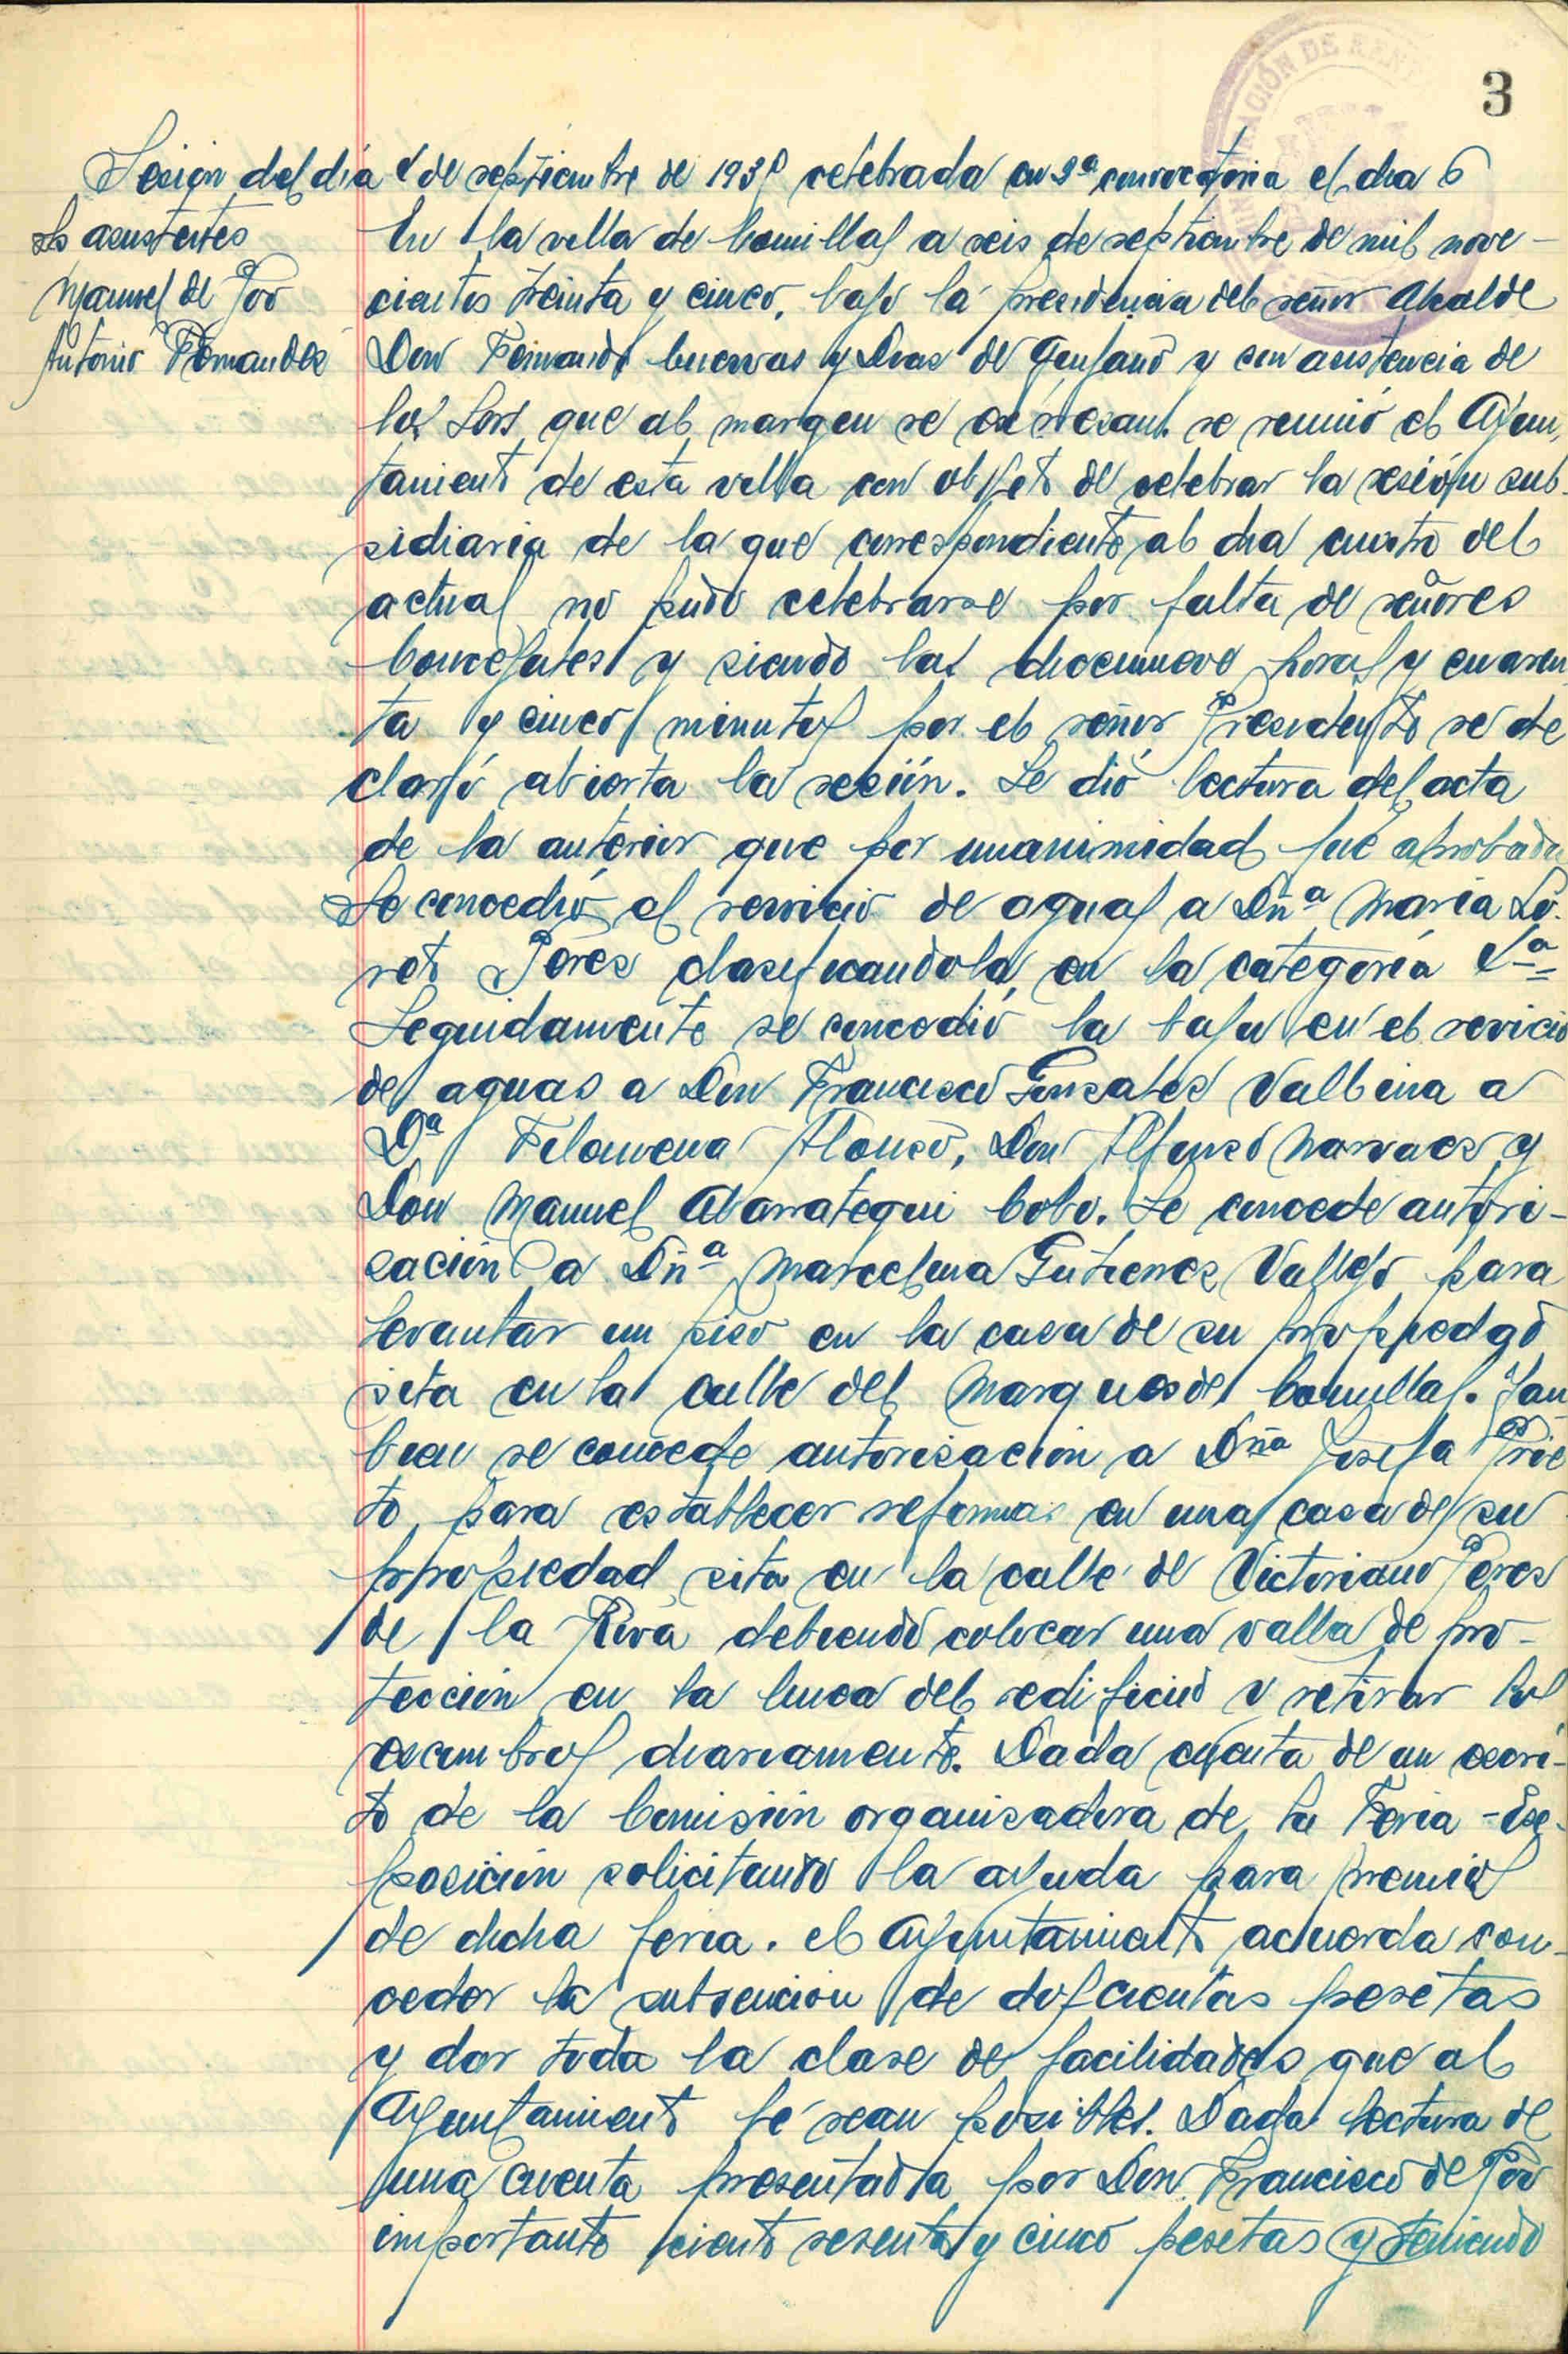 3
Sesión del día 4 de septiembre de 1935 celebrada en 2ª convocatoria el dia 6
Sres asistentes
Manuel de Poo
Antonio Fernandez
En la villa de Comillas a seis de septiembre de mil nove-
cientos treinta y cinco, bajo la presidencia del señor Alcalde
Don Fernando Cuevas y Diaz de y con asistencia de
los Sres que al margen se expresan. se reunió el Ayun
tamiento de esta villa con objeto de celebrar la sesión sub-
sidiaria de la que correspondiente al dia cuatro del
actual no pudo celebrarse por falta de señores
Concejales y siendo las diecinueve horas y cuaren
ta y cinco minutos por el señor Presidente se de
claró abierta la sesión. Se dió lectura del acta
de la anterior que por unanimidad fué aprobada
Se concedió el servicio de aguas a Dñª Maria Lo-
reto Perez clasificandola en la categoria
Seguidamente se concedió la baja en el sevicio
de aguas a Don Francisco Gonzalez Valbina a
Dª Filomena Alonso, Don Alfonso Narvaez y
Don Manuel Abarrategui Cobo. Se concede autori-
zación a Dñª Marcelina Gutierrez Vallejo para
levantar un piso en la casa de su
sita en la calle del Marques de Comillas. Tan
bien se concede autorización a Dña Josefa Prie
to para establecer reformas en una casa de su
propiedad sita en la calle de Victoriano Perez
de la Riva debiendo colocar una valla de pro-
tección en la linea del edificio y retirar los
escombros diariamente. Dada cuenta de un escri-
to de la Comisión organizadora de la Feria-Ex-
posición solicitando la ayuda para premios
de dicha feria. el Ayuntamiento acuerda con-
ceder la subvencion de doscientas pesetas
y dar toda la clase de facilidades que al
Ayuntamiento le sean posibles. Dada lectura de
una cuenta presentada por Don Francisco de Poo
importante ciento sesenta y cinco pesetas y teniendo